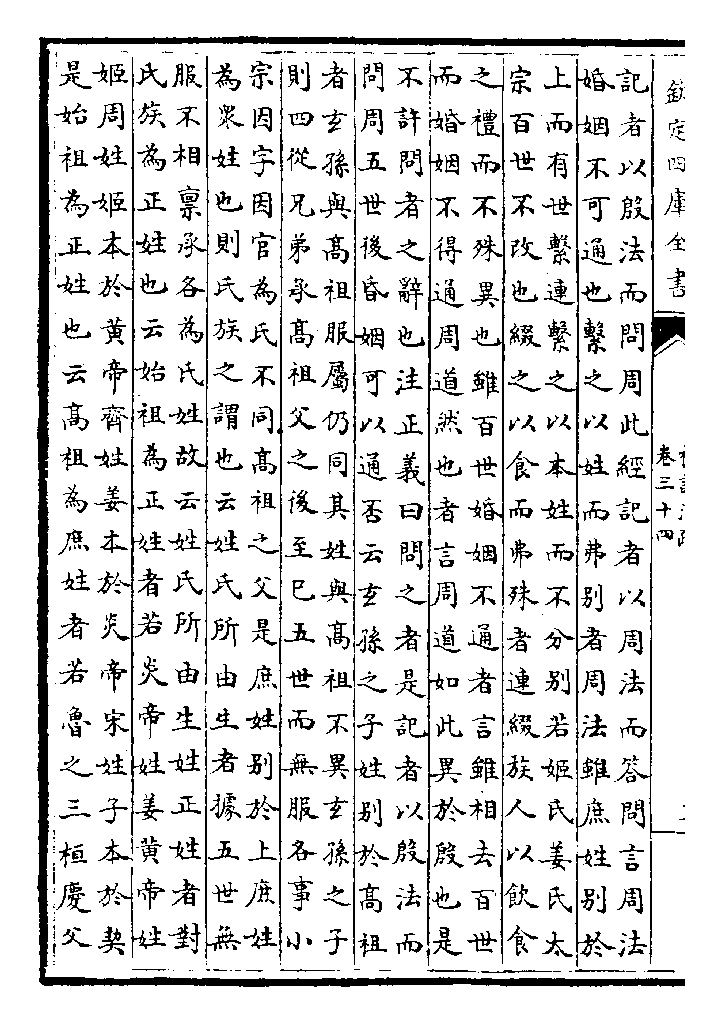 欽定四庫全書
卷三十四
記者以殷法而問周此經記者以周法而答問言周法
婚姻不可通也繫之以姓而弗別者周法雖庶姓別於
上而有世繫連繫之以本姓而不分別若姬氏姜氏太
宗百世不改也綴之以食而弗殊者連綴族人以飲食
之禮而不殊異也雖百世婚姻不通者言雖相去百世
而婚姻不得通周道然也者言周道如此異於殷也是
不許問者之辭也注正義曰問之者是記者以殷法而
問周五世後昏姻可以通否云玄孫之子姓別於髙祖
者玄孫與髙祖服屬仍同其姓與髙祖不異玄孫之子
則四從兄弟承髙祖父之後至已五世而無服各事小
宗因字因官為氏不同髙祖之父是庶姓別於上庶姓
為衆姓也則氏族之謂也云姓氏所由生者據五世無
服不相稟承各為氏姓故云姓氏所由生姓正姓者對
氏族為正姓也云始祖為正姓者若炎帝姓姜黃帝姓
姬周姓姬本於黃帝齊姓姜本於炎帝宋姓子本於契
是始祖為正姓也云髙祖為庶姓者若魯之三桓慶父